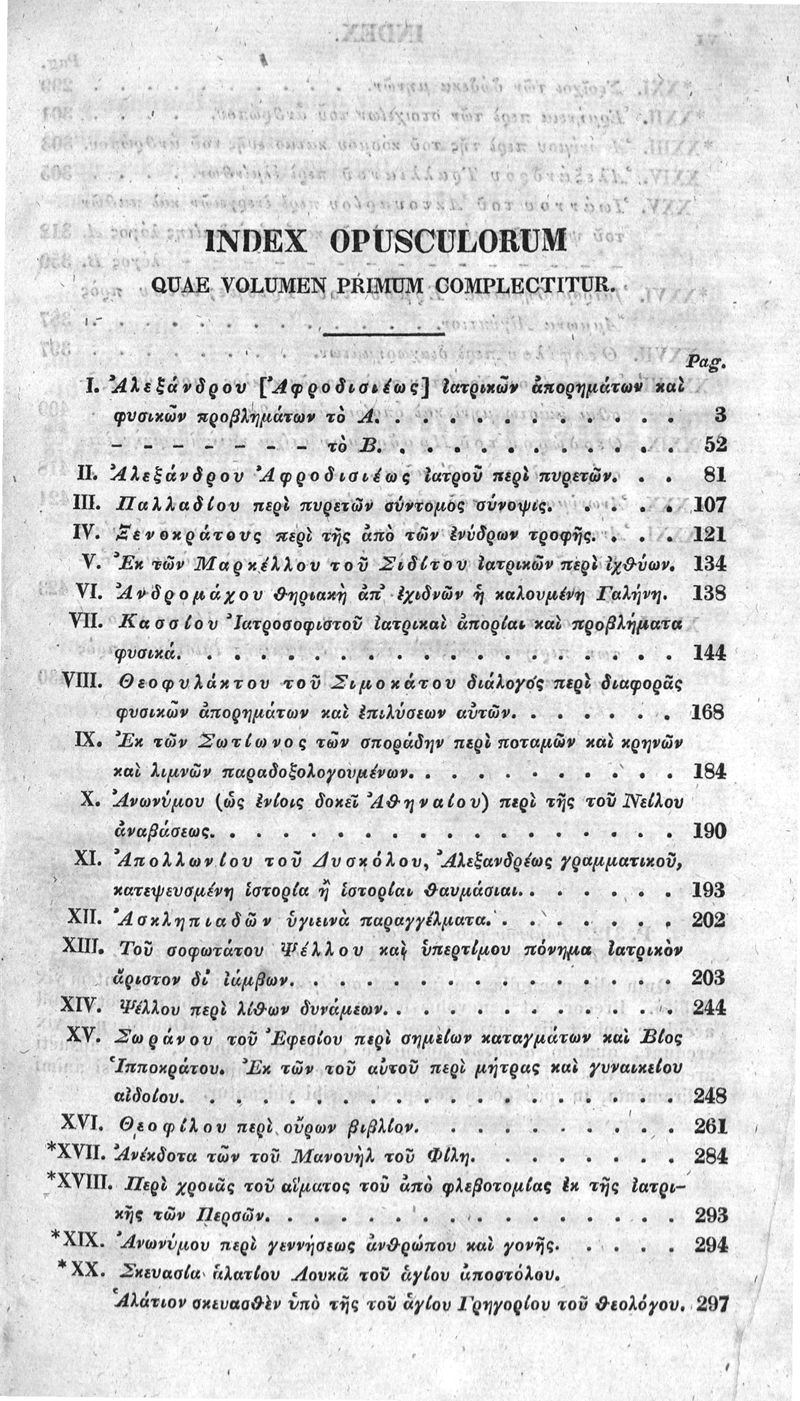 INDEX OPUSCULORUM
QUAE VOLUMEN PRIMUM COMPLECTITUR.
Pag.
I. Ἀλεξάνδρου [Ἀφροδισιέως] ἰατρικῶν ἀπορημάτων καὶ
φυσικῶν προβλημάτων τὸ Α. . . . . . . . . . . . 3
– – – – – – – τὸ Β. . . . . . . . . . . . 52
II. Ἀλεξάνδρου Ἀφροδισιέως ἰατροῦ περὶ πυρετῶν. . . 81
III. Παλλαδίου περὶ πυρετῶν σύντομος σύνοψις. . . . . . 107
IV. Ξενοκράτους περὶ τῆς ἀπὸ τῶν ἐνύδρων τροφῆς. . . . 121
V. Ἐκ τῶν Μαρκέλλου τοῦ Σιδίτου ἰατρικῶν περὶ ἰχθύων. 134
VI. Ἀνδρομάχου θηριακὴ ἀπ' ἐχιδνῶν ἡ καλουμένη Γαλήνη. 138
VII. Κασσίου Ἰατροσοφιστοῦ ἰατρικαὶ ἀπορίαι καὶ προβλήματα
φυσικά. . . . . . . . . . . . . . . . . . . . 144
VIII. Θεοφυλάκτου τοῦ Σιμοκάτου διάλογος περὶ διαφορᾶς
φυσικῶν ἀπορημάτων καὶ ἐπιλύσεων αὐτῶν. . . . . . . 168
IX. Ἐκ τῶν Σωτίωνος τῶν σποράδην περὶ ποταμῶν καὶ κρηνῶν
καὶ λιμνῶν παραδοξολογουμένων. . . . . . . . . . . 184
X. Ἀνωνύμου (ὡς ἐνίοις δοκεῖ Ἀθηναίου) περὶ τῆς τοῦ Νείλου
ἀναβάσεως. . . . . . . . . . . . . . . . . . . 190
XI. Ἀπολλωνίου τοῦ Δυσκόλου, Ἀλεξανδρέως γραμματικοῦ,
κατεψευσμένη ἱστορία ἢ ἱστορίαι θαυμάσιαι. . . . . . . 193
XII. Ἀσκληπιαδῶν ὑγιεινὰ παραγγέλματα. . . . . . . . 202
XIII. Τοῦ σοφωτάτου Ψέλλου καὶ ὑπερτίμου πόνημα ἰατρικὸν
ἄριστον δι' ἰάμβων. . . . . . . . . . . . . . . . 203
XIV. Ψέλλου περὶ λίθων δυνάμεων. . . . . . . . . . . . 244
XV. Σωράνου τοῦ Ἐφεσίου περὶ σημείων καταγμάτων καὶ Βίος
Ἱπποκράτου. Ἐκ τῶν τοῦ αὐτοῦ περὶ μήτρας καὶ γυναικείου
αἰδοίου. . . . . . . . . . . . . . . . . . . . 248
XVI. Θεοφίλου περὶ οὔρων βιβλίον. . . . . . . . . . . 261
*XVII. Ἀνέκδοτα τῶν τοῦ Μανουὴλ τοῦ Φίλη. . . . . . . . 284
*XVIII. Περὶ χροιᾶς τοῦ αἵματος τοῦ ἀπὸ φλεβοτομίας ἐκ τῆς ἰατρι-
κῆς τῶν Περσῶν. . . . . . . . . . . . . . . . . 293
*XIX. Ἀνωνύμου περὶ γεννήσεως ἀνθρώπου καὶ γονῆς. . . . . 294
*XX. Σκευασία ἁλατίου Λουκᾶ τοῦ ἁγίου ἀποστόλου.
Ἁλάτιον σκευασθὲν ὑπὸ τῆς τοῦ ἁγίου Γρηγορίου τοῦ θεολόγου. 297